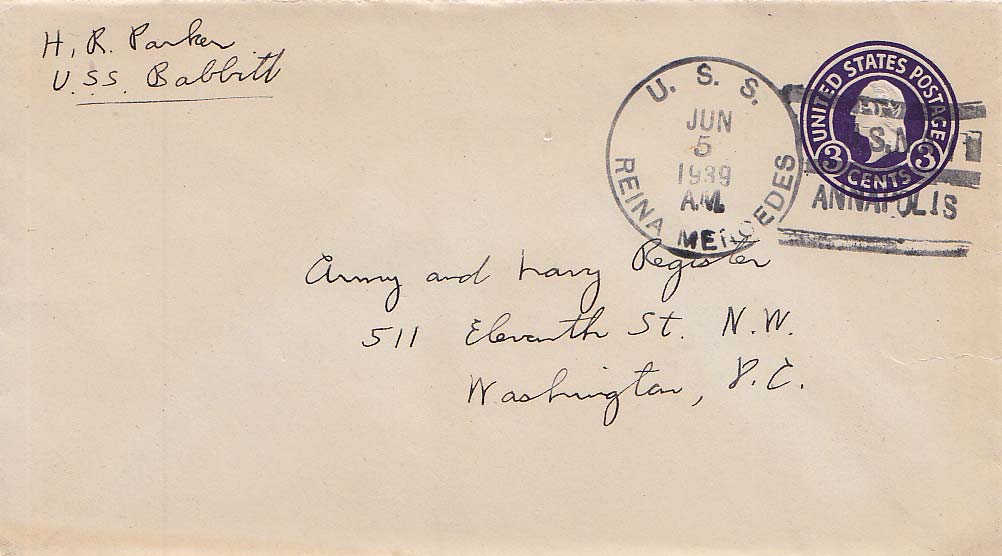 H. R. Parker
U.S.S. Babbitt
U. S. S.
JUN
5
1939
A.M.
REINA MERCEDES
UNITED STATES POSTAGE
3 CENTS 3
ANNAPOLIS
Army and Navy Register
511 Eleventh St. N.W.
Washington, D.C.